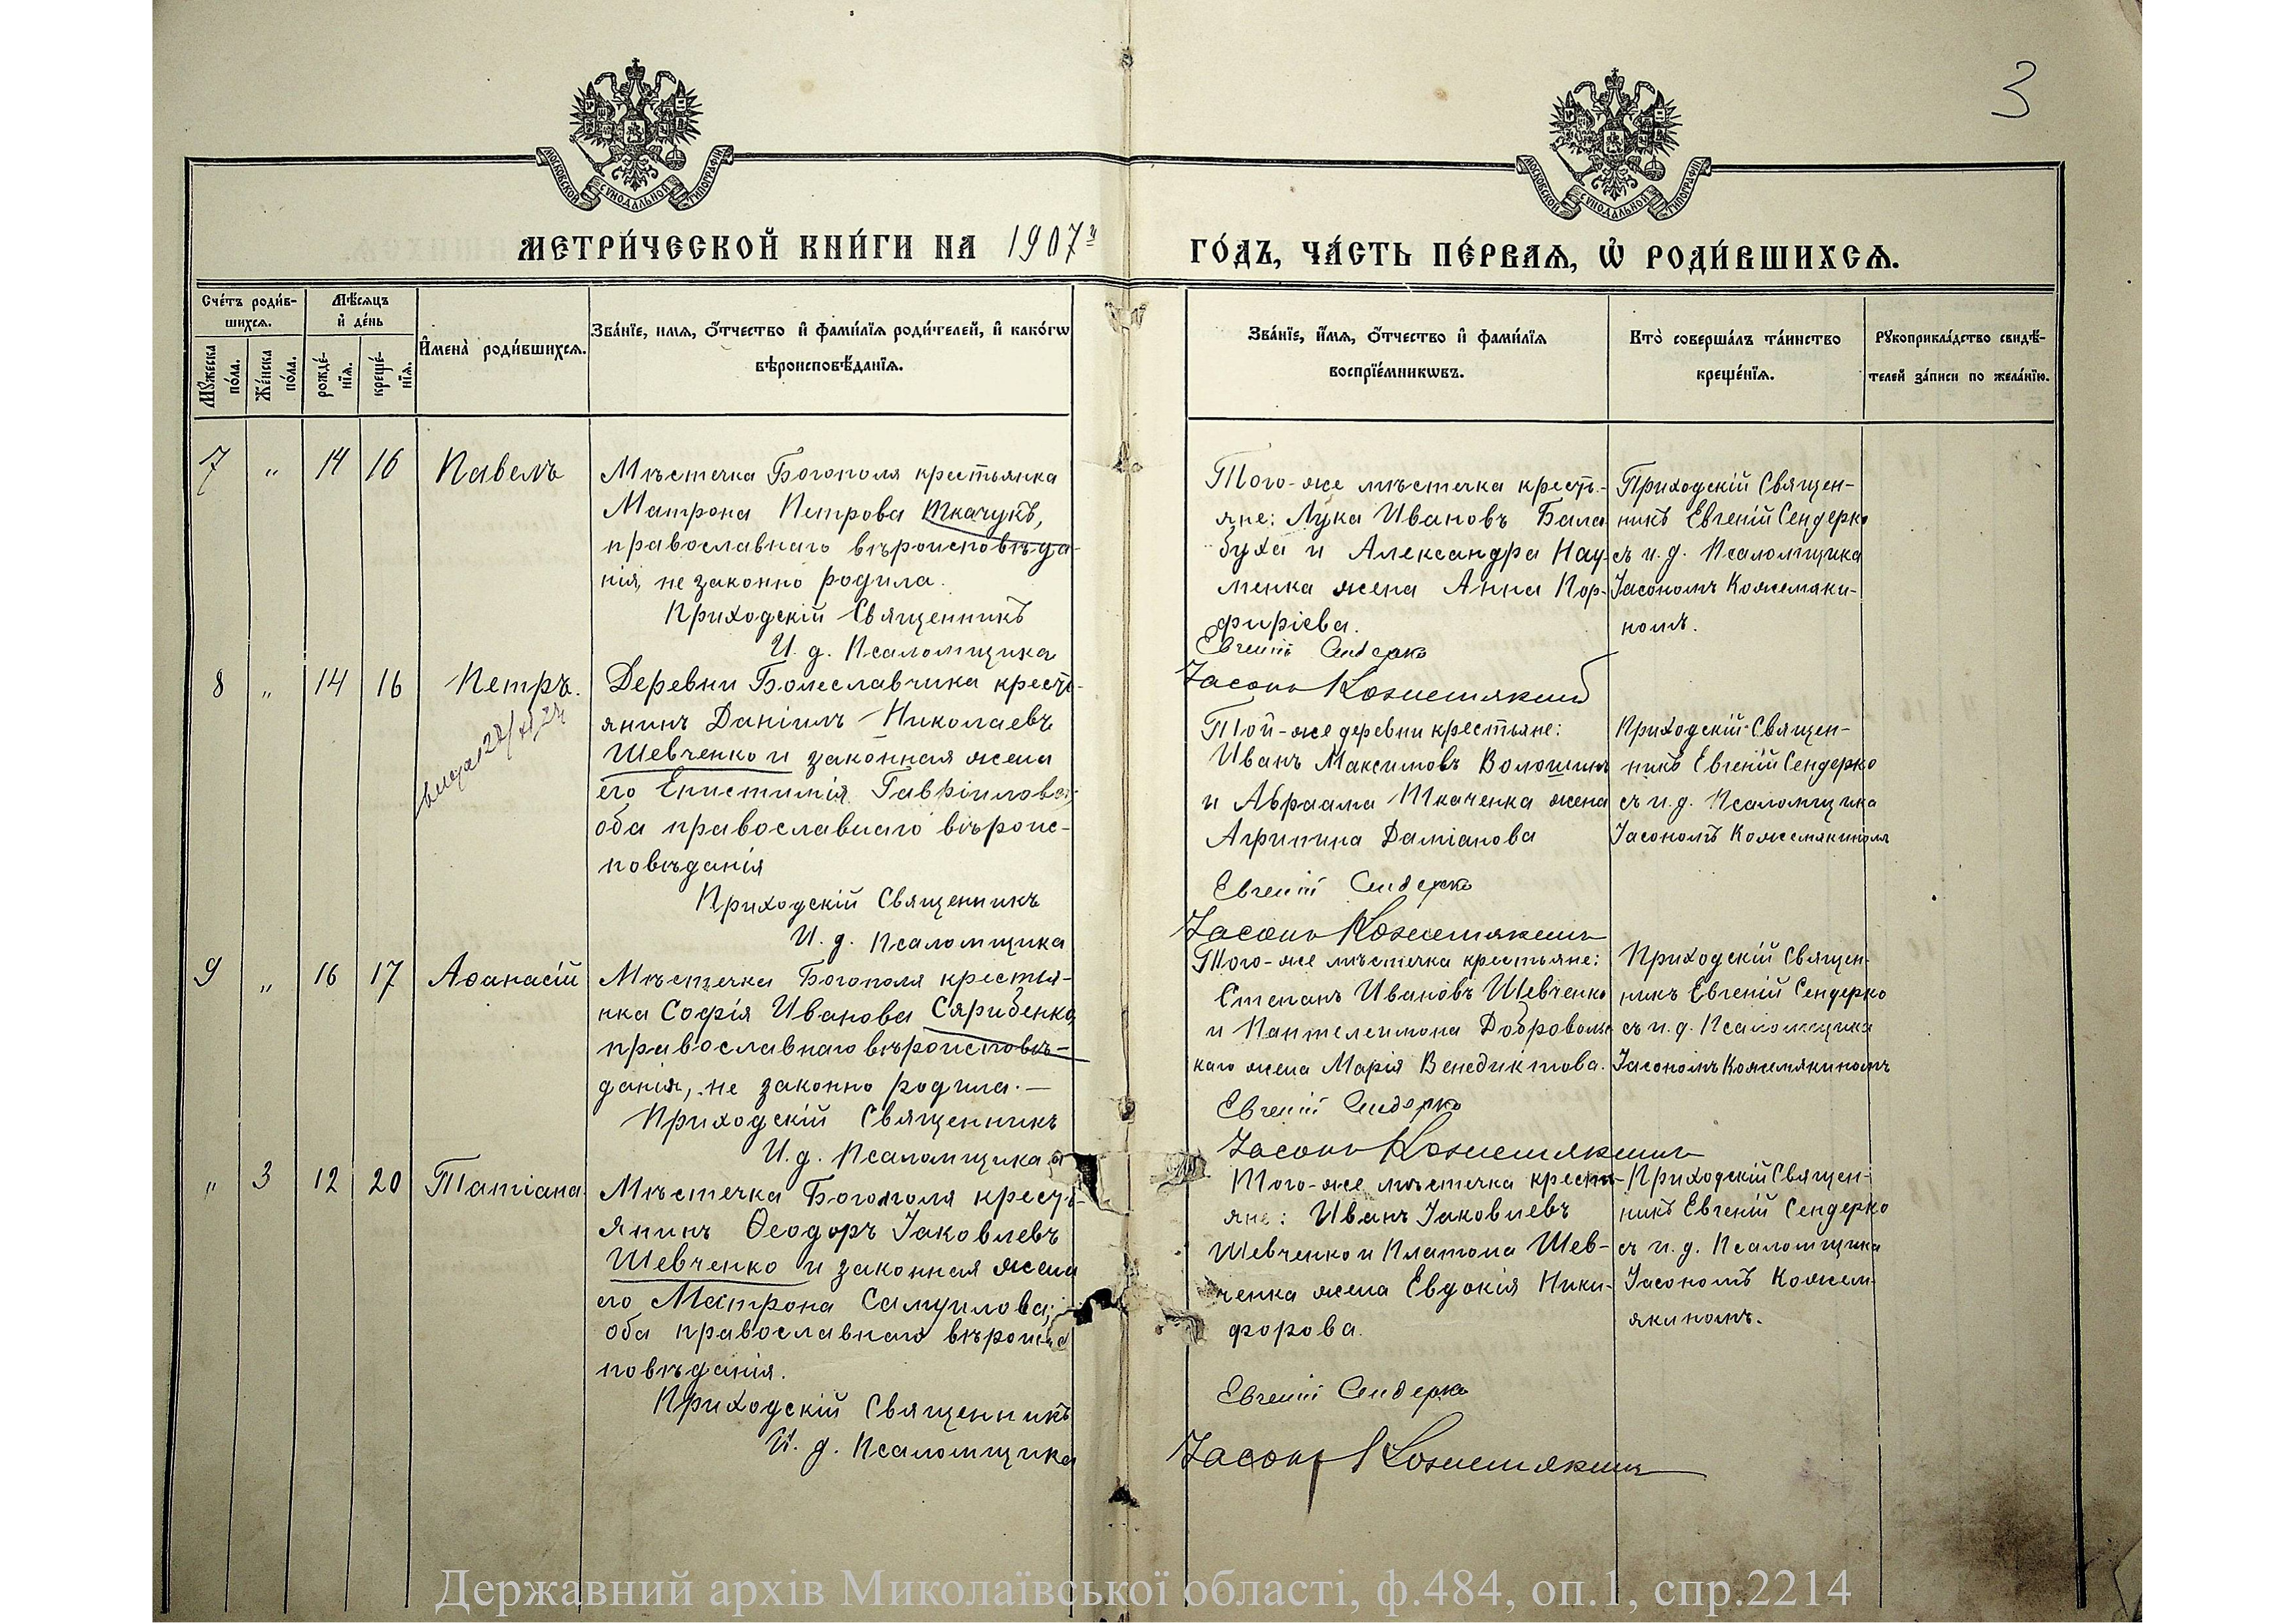 3
МОСКОВСКОЙ СУНОДАЛЬНОЙ ТИПОГРАФІИ
МОСКОВСКОЙ СУНОДАЛЬНОЙ ТИПОГРАФІИ
МЕТРИ́ЧЕСКОЙ КНИ́ГИ НА 1907й ГО́ДЪ, ЧА́СТЬ ПЕ́РВАѦ, Ѿ РОДИ́ВШИХСѦ.
Сче́тъ роди́в-
шихсѧ.
Мꙋ́жеска по́ла.
Же́нска по́ла.
Мѣ́сѧцъ
и҆ де́нь
рожде́-
нїѧ.
креще́-
нїѧ.
И҆мена̀ роди́вшихсѧ.
Зва́нїе, и҆мѧ, ѻ҆́тчество и҆ фами́лїѧ роди́телей, и҆ како́гѡ
вѣроисповѣ́данїѧ.
Зва́нїе, и҆́мѧ, ѻ҆́тчество и҆ фами́лїѧ
воспрїе́мникѡвъ.
Кто̀ соверша́лъ та́инство
креще́нїѧ.
Рꙋкоприкла́дство свидѣ́-
телей за́писи по жела́нїю.
7 „ 14 16 Павелъ
Мѣстечка Богополя крестьянка
Матрона Петрова Ткачукъ,
православнаго вѣроисповѣда-
нія, не законно родила.
Приходскій Священникъ
И. д. Псаломщика
Того-же мѣстечка кресть-
яне: Лука Ивановъ Бала
буха и Александра Нау-
менка жена Анна Пор-
фиріева.
Евгеній Сендерко
Іасонъ Кожемякинъ
Приходскій Священ-
никъ Евгеній Сендерко
съ и. д. Псаломщика
Іасономъ Кожемяки-
номъ.
8 „ 14 16 Петръ.
Деревни Болеславчика кресть-
янинъ Даніилъ Николаевъ
Шевченко и законная жена
его Епистимія Гавріилова;
оба православнаго вѣроис-
повѣданія
Приходскій Священникъ
И. д. Псаломщика
Той-же деревни крестьяне:
Иванъ Максимовъ Волошинъ
и Абраама Ткаченка жена
Агрипина Даміанова
Евгеній Сендерко
Іасонъ Кожемякинъ
Приходскій Священ-
никъ Евгеній Сендерко
съ и. д. Псаломщика
Іасономъ Кожемякиномъ
9 „ 16 17 Аѳанасій
Мѣстечка Богополя крестья-
нка Софія Иванова Сярибенко,
православнаго вѣроисповѣ-
данія, не законно родила.—
Приходскій Священникъ
И. д. Псаломщика
Того-же мѣстечка крестьяне:
Степанъ Ивановъ Шевченко
и Пантелеимона Доброволь
каго жена Марія Венедиктова.
Евгеній Сендерко
Іасонъ Кожемякинъ
Приходскій Священ-
никъ Евгеній Сендерко
съ и. д. Псаломщика
Іасономъ Кожемякиномъ
„ 3 12 20 Татіана
Мѣстечка Богополя кресть-
янинъ Ѳеодоръ Іаковлевъ
Шевченко и законная жена
его Матрона Самуилова;
оба православнаго вѣроис
повѣданія.
Приходскій Священникъ
И. д. Псаломщика
Того-же мѣстечка кресть-
яне: Иванъ Іаковлевъ
Шевченко и Платона Шев-
ченка жена Евдокія Ники-
форова.
Евгеній Сендерко
Іасонъ Кожемякинъ
Приходскій Священ-
никъ Евгеній Сендерко
съ и. д. Псаломщика
Іасономъ Кожем-
якиномъ.
Державний архів Миколаївської області, ф.484, оп.1, спр.2214